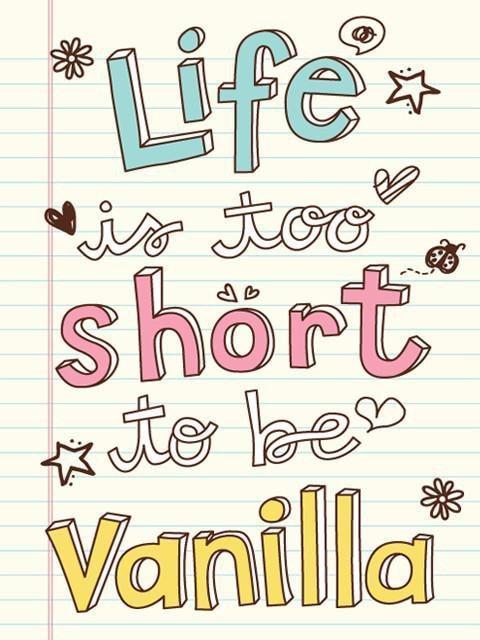 Life
is too
short
to be
Vanilla